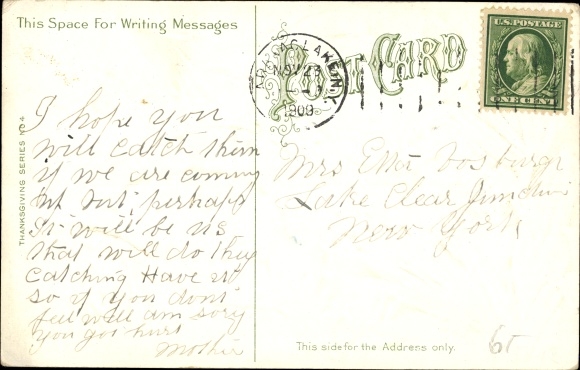 This Space For Writing Messages
I hope you
will catch them
if we are coming
but perhaps
It will be us
that will do they
catching Have it
so if you dont
feel well am sory
you got hurt
Mother
THANKSGIVING SERIES NO 4
POST CARD
LAKE N.Y.
NOV 23
1909
U.S. POSTAGE
ONE CENT
Mrs Etta Vosburgh
Lake Clear Junction
New York
This side for the Address only.